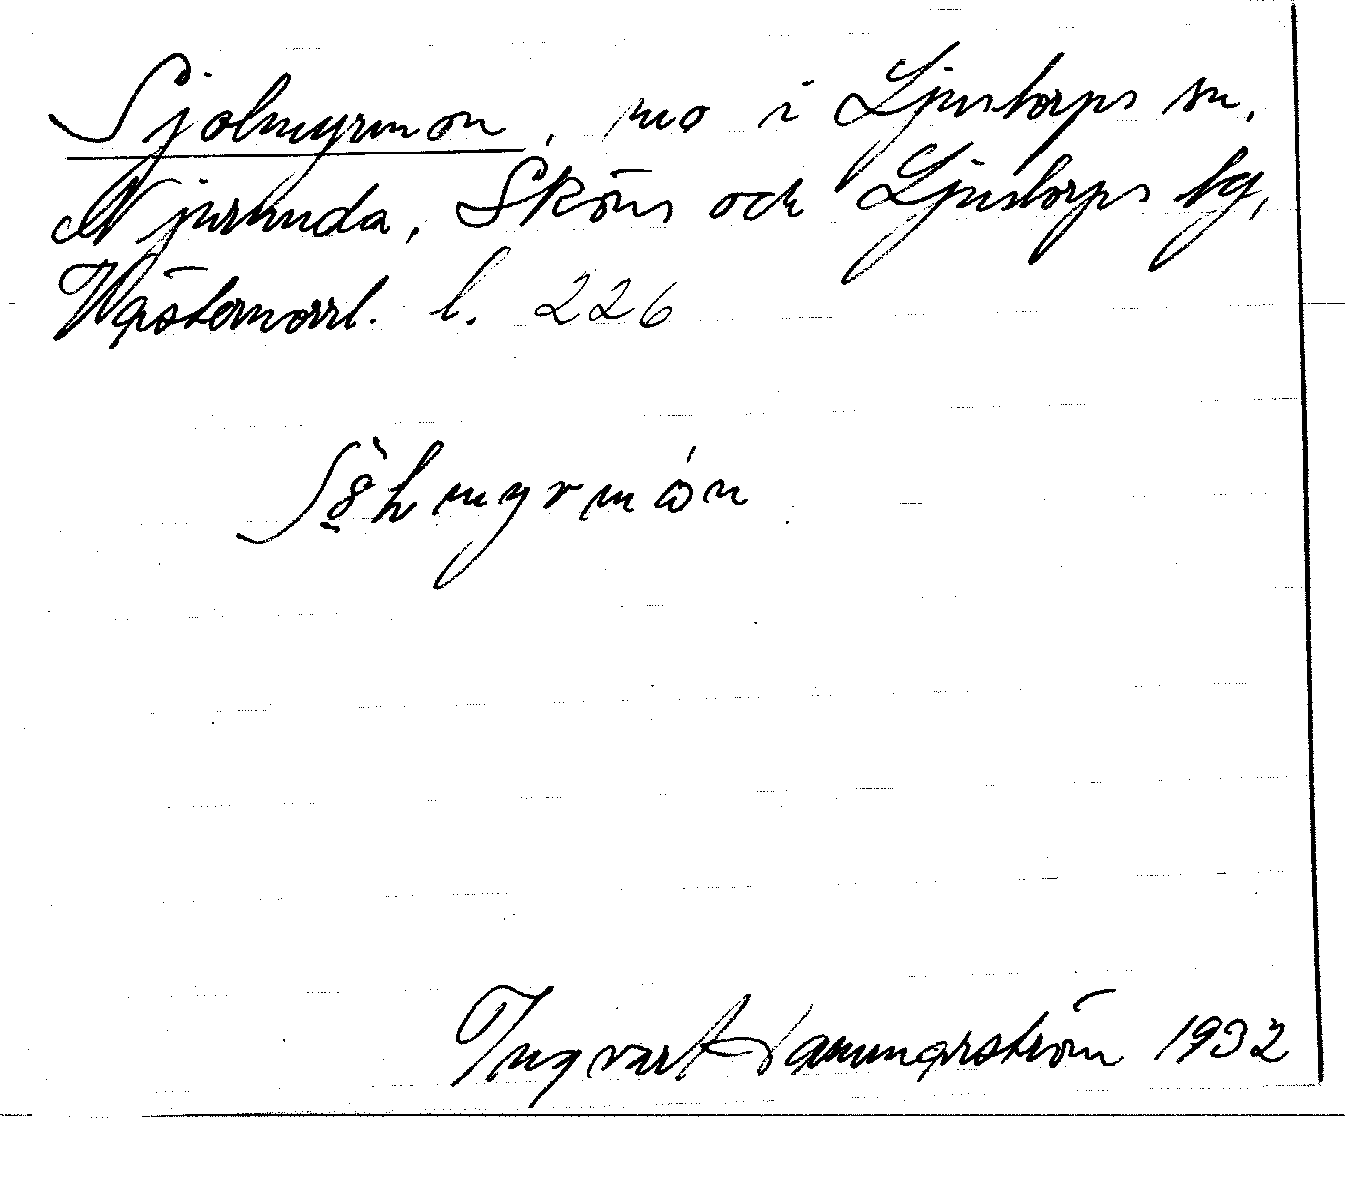 Sjolmyrmon, mo i Ljustorps sn,
Njurunda, Sköns och Ljustorps tg,
Västernorrl. l. 226
Ingvar Hammarström 1932